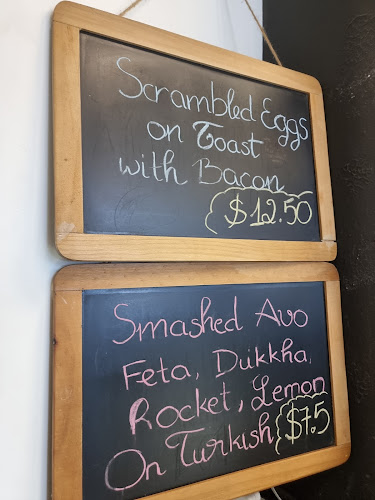 Scrambled Eggs
on Toast
with Bacon
$12.50
Smashed Avo
Feta, Dukkha,
Rocket, Lemon
On Turkish
$7.5